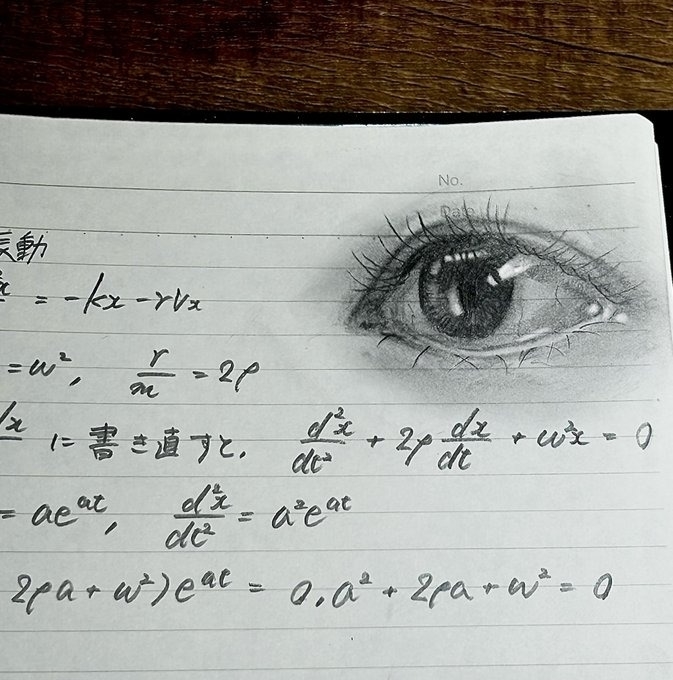 No.
Date
振動
= -kx - rVx
= w², r/m = 2ρ
dx に書き直すと、 d²x/dt² + 2ρ dx/dt + w²x = 0
= ae^{at}, d²x/dt² = a²e^{at}
2ρa + w²)e^{at} = 0, a² + 2ρa + w² = 0